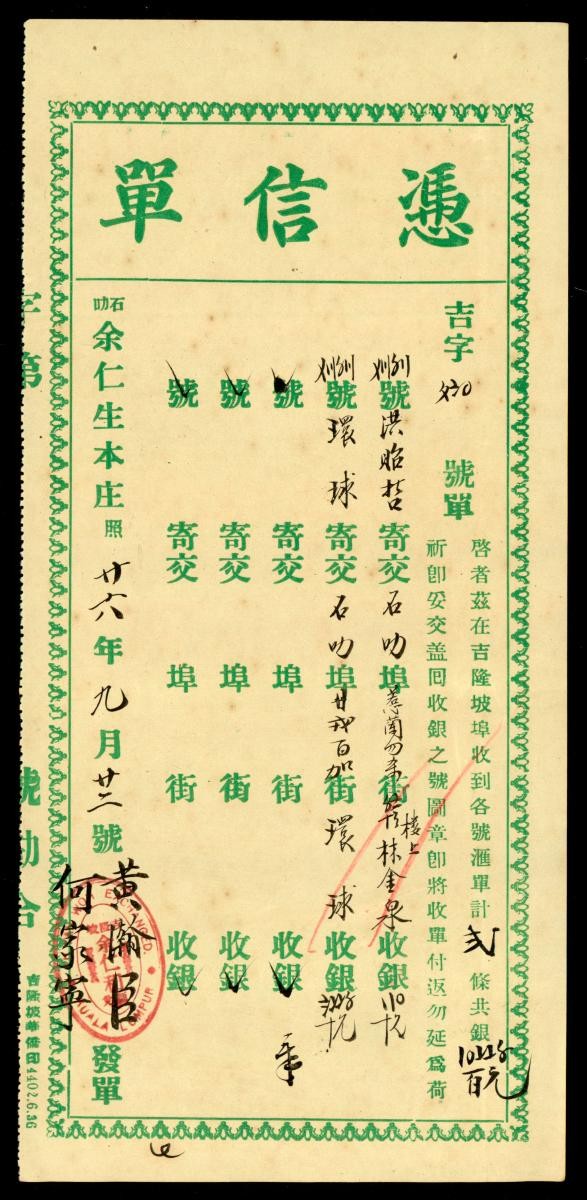 憑信單
吉字 號單
啓者茲在吉隆坡埠收到各號滙單計 弍 條共銀
祈卽妥交盖囘收銀之號圖章卽將收單付返勿延爲荷
號 洪昭哲 寄交 石叻 埠 街 楼上 林金泉 收銀
號 環球 寄交 石叻 埠 街 環球 收銀
號 寄交 埠 街 收銀
號 寄交 埠 街 收銀
號 寄交 埠 街 收銀
石叻 余仁生本庄 照 廿六年九月廿二號 發單
黃瀚臣
何家寧
MONEY EXCHANGED.
余仁生
KUALA LUMPUR
字第 號勘合
吉隆坡華僑印 4402.6.36